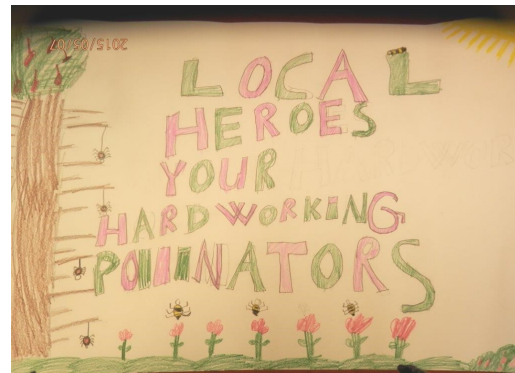 2015/05/07
LOCAL
HEROES
YOUR
HARDWORKING
POLLINATORS